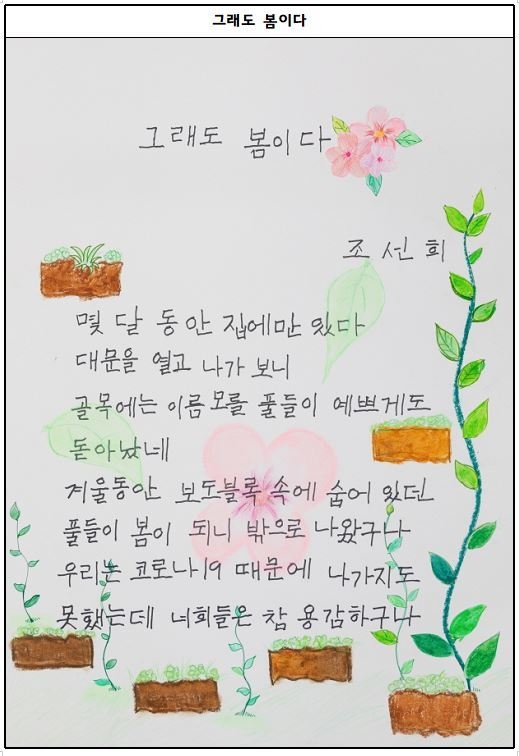 그래도 봄이다
그래도 봄이다
조선희
몇 달 동안 집에만 있다
대문을 열고 나가 보니
골목에는 이름 모를 풀들이 예쁘게도
돋아났네
겨울동안 보도블록 속에 숨어 있던
풀들이 봄이 되니 밖으로 나왔구나
우리는 코로나19 때문에 나가지도
못했는데 너희들은 참 용감하구나